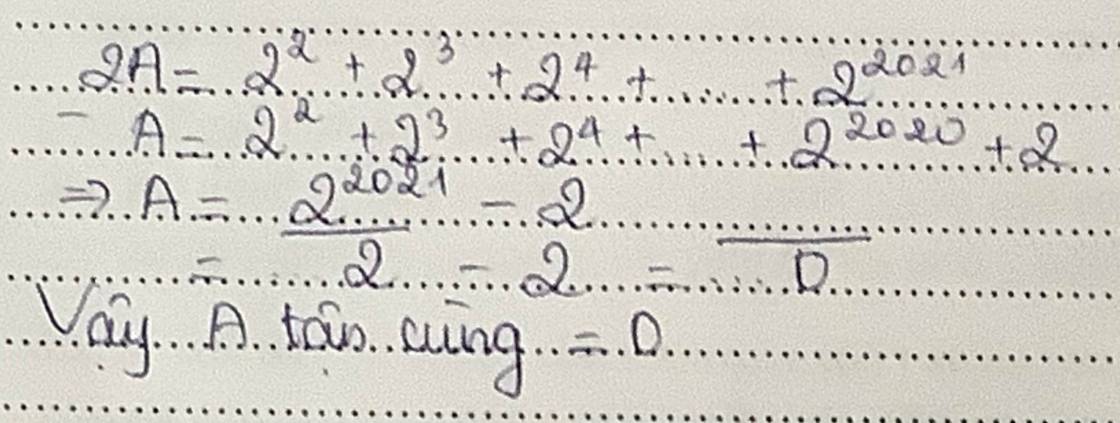 2A = 2² + 2³ + 2⁴ + ..... + 2²⁰²¹
− A = 2² + 2³ + 2⁴ + ..... + 2²⁰²⁰ + 2
⇒ A = 2²⁰²¹ − 2
= ‾‾‾2 − 2 = ‾‾‾0
Vậy A tận cùng = 0